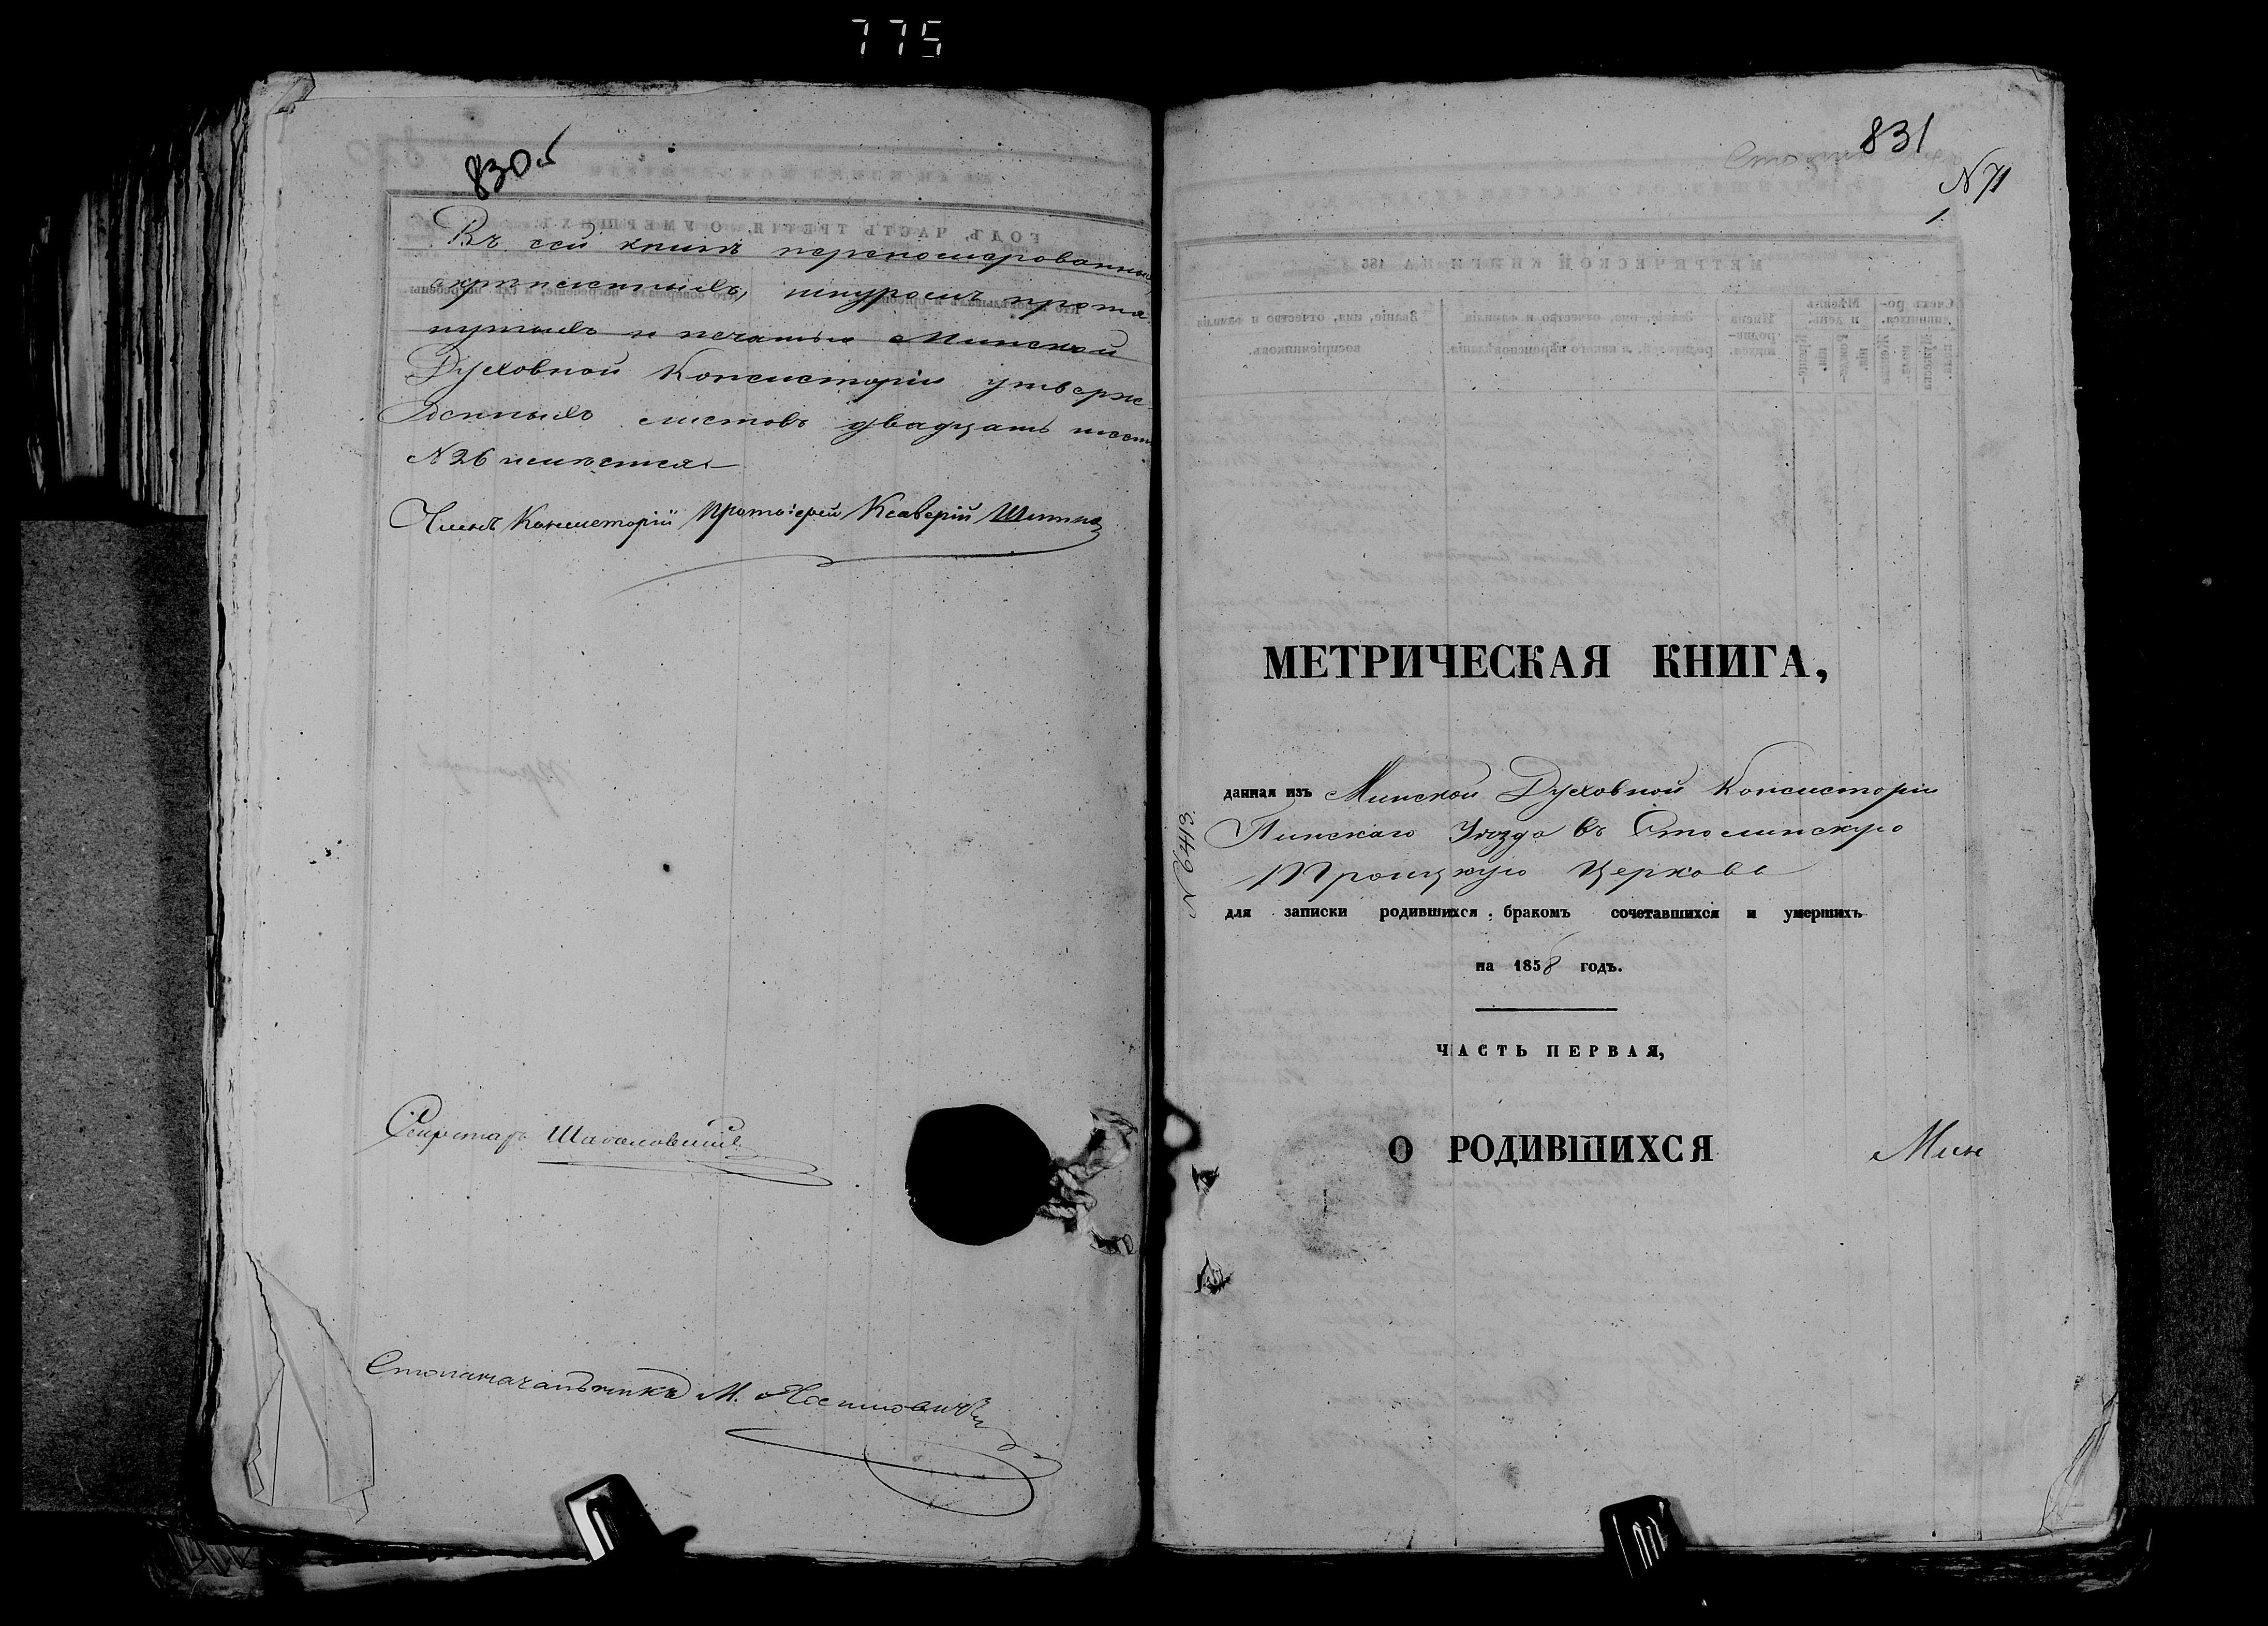 775
830об
Въ сей книгѣ перенумерованныхъ
скрепленныхъ, шнуромъ протя
нутыхъ и печатью Минской
Духовной Консисторіи утверж-
денныхъ листовъ двадцать шесть
№ 26 имѣется.
Членъ Консисторіи Протоіерей Ксаверій
Секретарь
Столоначальникъ М.
831
№ 71
1.
МЕТРИЧЕСКАЯ КНИГА,
данная изъ Минской Духовной Консисторіи
Пинскаго Уѣзда въ Столинскую
Троицкую Церковь
для записки родившихся, бракомъ сочетавшихся и умершихъ
на 1858 годъ.
ЧАСТЬ ПЕРВАЯ,
О РОДИВШИХСЯ
Мин
№ 6413